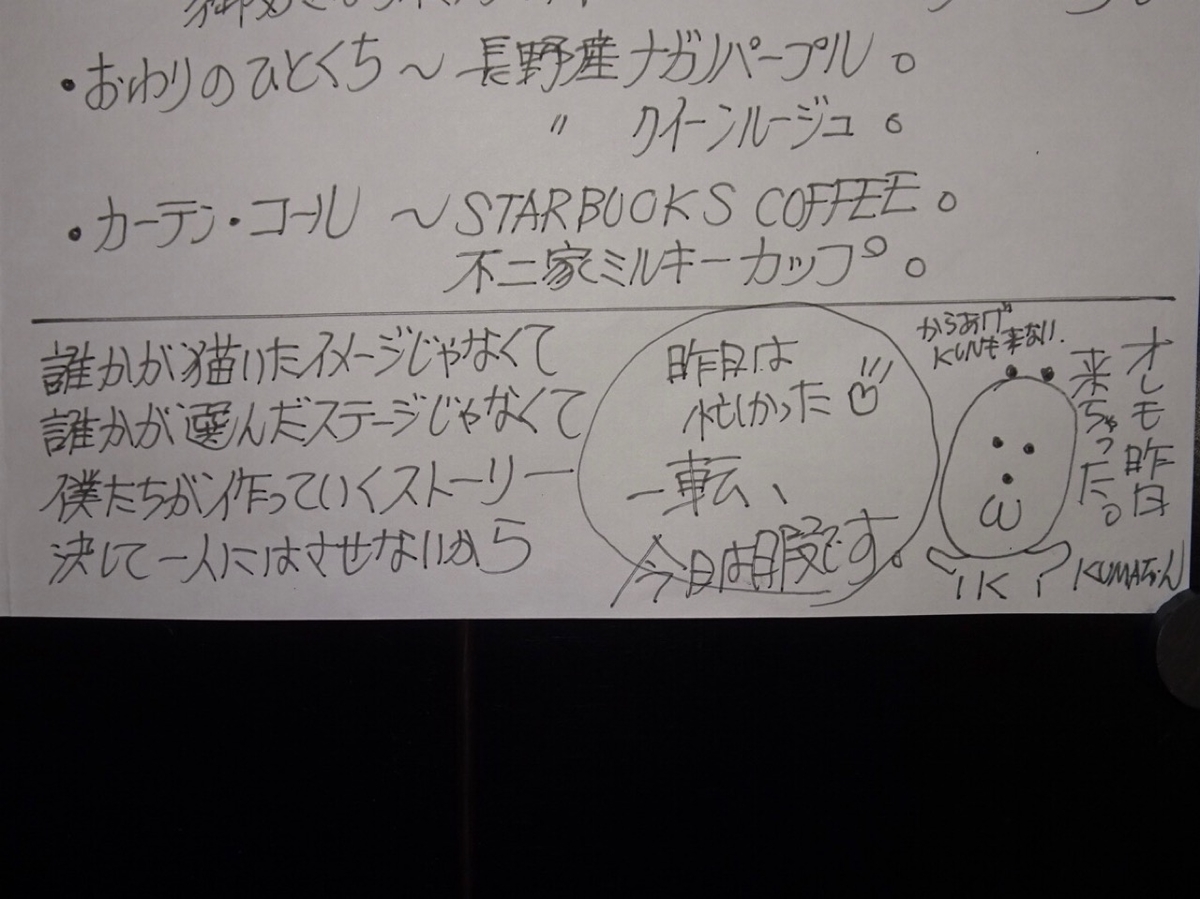 ・おわりのひとくち〜長野産ナガノパープル。
〃 クイーンルージュ。
・カーテン・コール 〜STARBUCKS COFFEE。
不二家ミルキーカップ。
誰かが描いたイメージじゃなくて
誰かが選んだステージじゃなくて
僕たちが作っていくストーリー
決して一人にはさせないから
昨日は
忙しかった
一転、
今日は暇です。
からあげ
KUNも来ない.
オレモ昨日
来ちゃった。
K
KUMAちゃん